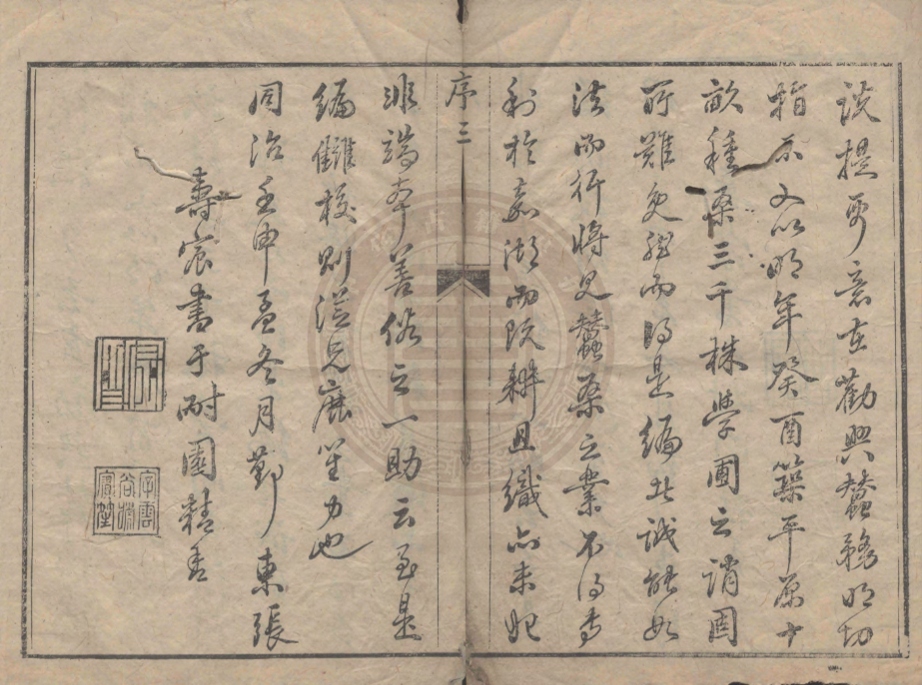 說提要意在勸興蠶務明切
指示又以明年癸酉築平原十
畝種桑三千株學圃之謂圃
所難免經而得是編此誠能如
法而行將見蠶桑之業不得專
利於嘉湖而既耕且織亦未始
序三
非端本善俗之一助云至是
編讎校則從兄鹿笙力也
同治壬申孟冬月鄞東張
壽宸書于耐園精舍